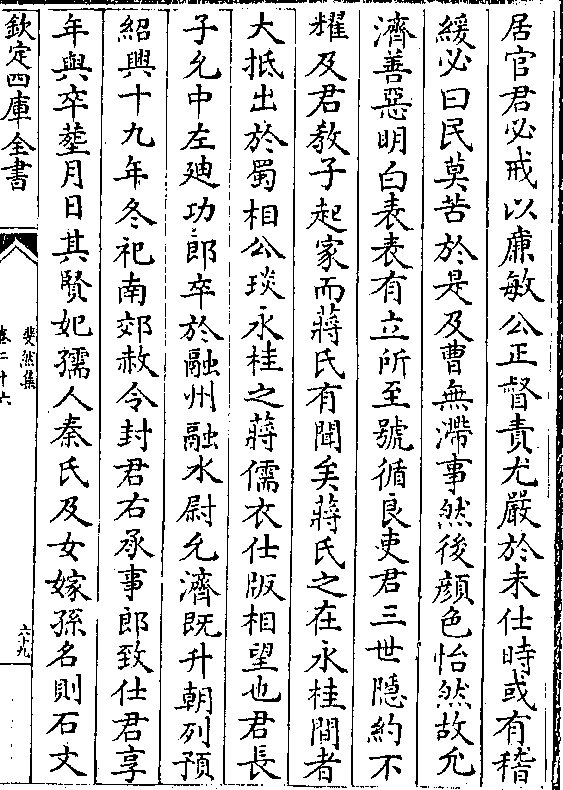 居官君必戒以廉敏公正督責尤嚴於未仕時或有稽
緩必曰民莫苦於是及曹無滯事然後顔色怡然故允
濟善惡明白表表有立所至號循良吏君三世隱約不
耀及君教子起家而蔣氏有聞矣蔣氏之在永桂間者
大抵出於蜀相公琰永桂之蔣儒衣仕版相望也君長
子允中左廸功郎卒於融州融水尉允濟既升朝列預
紹興十九年冬祀南郊赦令封君右承事郎致仕君享
年與卒塟月日其賢妃孺人秦氏及女嫁孫名則石丈
欽定四庫全書
斐然集
卷二十六
六十九